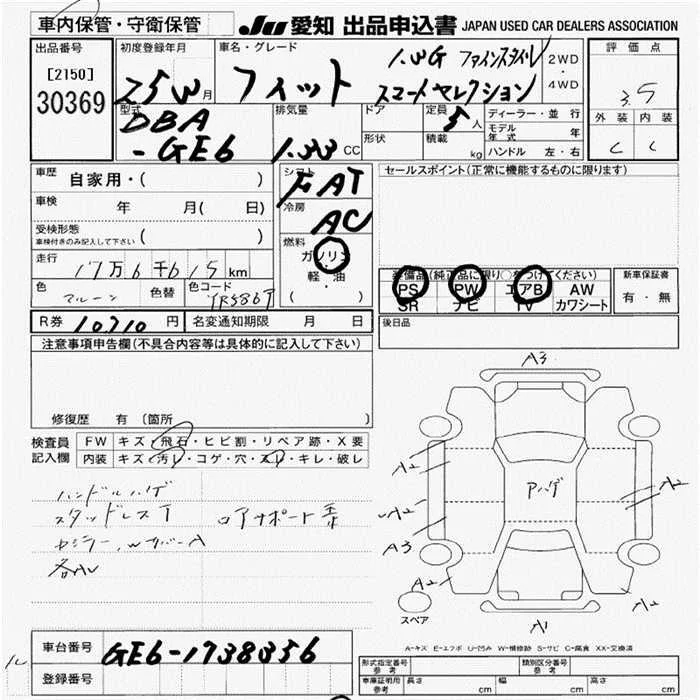 車内保管・守衛保管
JU 愛知 出品申込書 JAPAN USED CAR DEALERS ASSOCIATION
出品番号
[2150]
30369
初度登録年月
25 年 月
車名・グレード
フィット
1.3G ファインスタイル
スマートセレクション
2WD
・
4WD
評価点
3.5
外装 内装
C C
型式
DBA
-GE6
排気量
1.33 CC
ドア
形状
定員
5 人
積載
kg
ディーラー・並行
モデル年式 年
ハンドル 左・右
車歴
自家用・( )
車検
年 月( 日)
受検形態
車検付きのみ記入して下さい ( )
走行
17万6千615km
色
マルーン
色替
色コード
シフト
FAT
冷房
AC
燃料
ガソリン
軽・油
( )
セールスポイント(正常に機能するものに限ります)
装備品(純正品に限り○をつけてください)
PS PW エアB AW
SR ナビ TV カワシート
新車保証書
有・無
R券 10,710 円 名変通知期限 月 日
後日品
注意事項申告欄(不具合内容等は具体的に記入して下さい)
修復歴 有 〔箇所
検査員
記入欄
FW キズ・飛石・ヒビ割・リペア跡・X要
内装 キズ・汚レ・コゲ・穴・スレ・キレ・破レ
ハンドルハゲ
スタッドレスT
ロアサポートX
各AU
A3
A2
A2
A3
A2
A1
A2
A2
アハゲ
スペア
A-キズ E-エクボ U-凹み W-補修跡 S-サビ C-腐食 XX-交換済
車台番号 GE6-1738356
登録番号
形式指定番号
参考
類別区分番号
参考
車庫証明用
参考
長さ cm 幅 cm 高さ cm